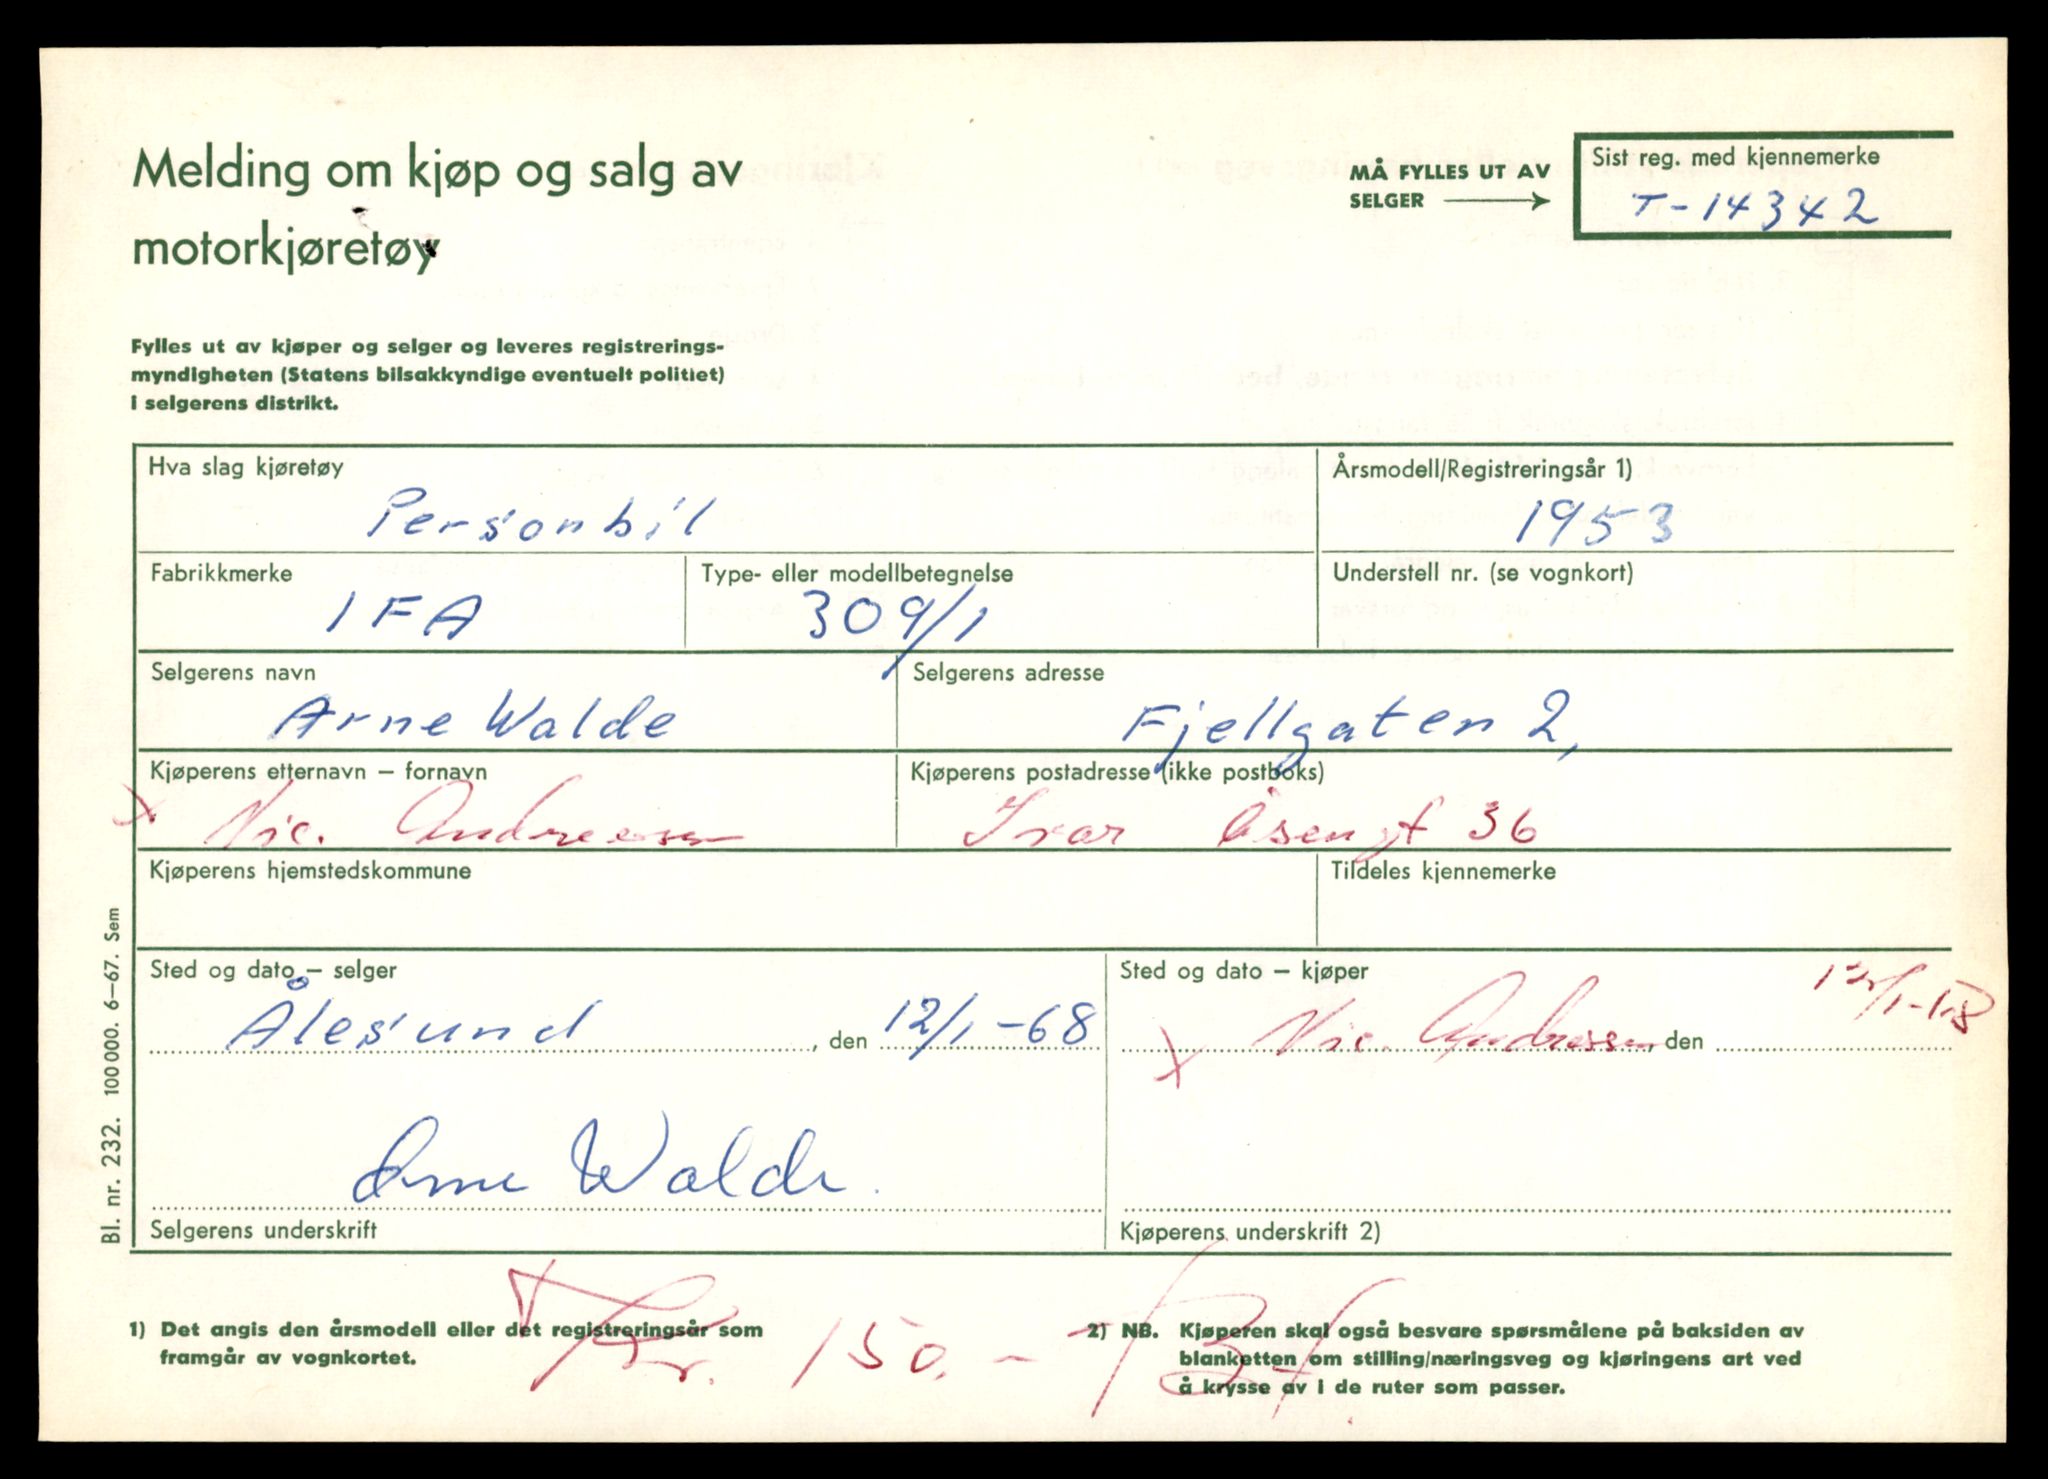 Melding om kjøp og salg av
motorkjøretøy
MÅ FYLLES UT AV
SELGER
Sist reg. med kjennemerke
T-14342
Fylles ut av kjøper og selger og leveres registrerings-
myndigheten (Statens bilsakkyndige eventuelt politiet)
i selgerens distrikt.
Hva slag kjøretøy
Personbil
Årsmodell/Registreringsår 1)
1953
Fabrikkmerke
IFA
Type- eller modellbetegnelse
309/1
Understell nr. (se vognkort)
Selgerens navn
Arne Walde
Selgerens adresse
Fjellgaten 2,
Kjøperens etternavn – fornavn
x Nic. Andreesen
Kjøperens postadresse (ikke postboks)
Ivar Åsengt 36
Kjøperens hjemstedskommune
Tildeles kjennemerke
Sted og dato – selger
Ålesund, den 12/1-68
Sted og dato – kjøper
x Nic. Andressen, den 12/1-68
Arne Walde
Selgerens underskrift
Kjøperens underskrift 2)
Kr. 150.-
1) Det angis den årsmodell eller det registreringsår som
framgår av vognkortet.
2) NB. Kjøperen skal også besvare spørsmålene på baksiden av
blanketten om stilling/næringsveg og kjøringens art ved
å krysse av i de ruter som passer.
Bl. nr. 232. 100 000. 6–67. Sem